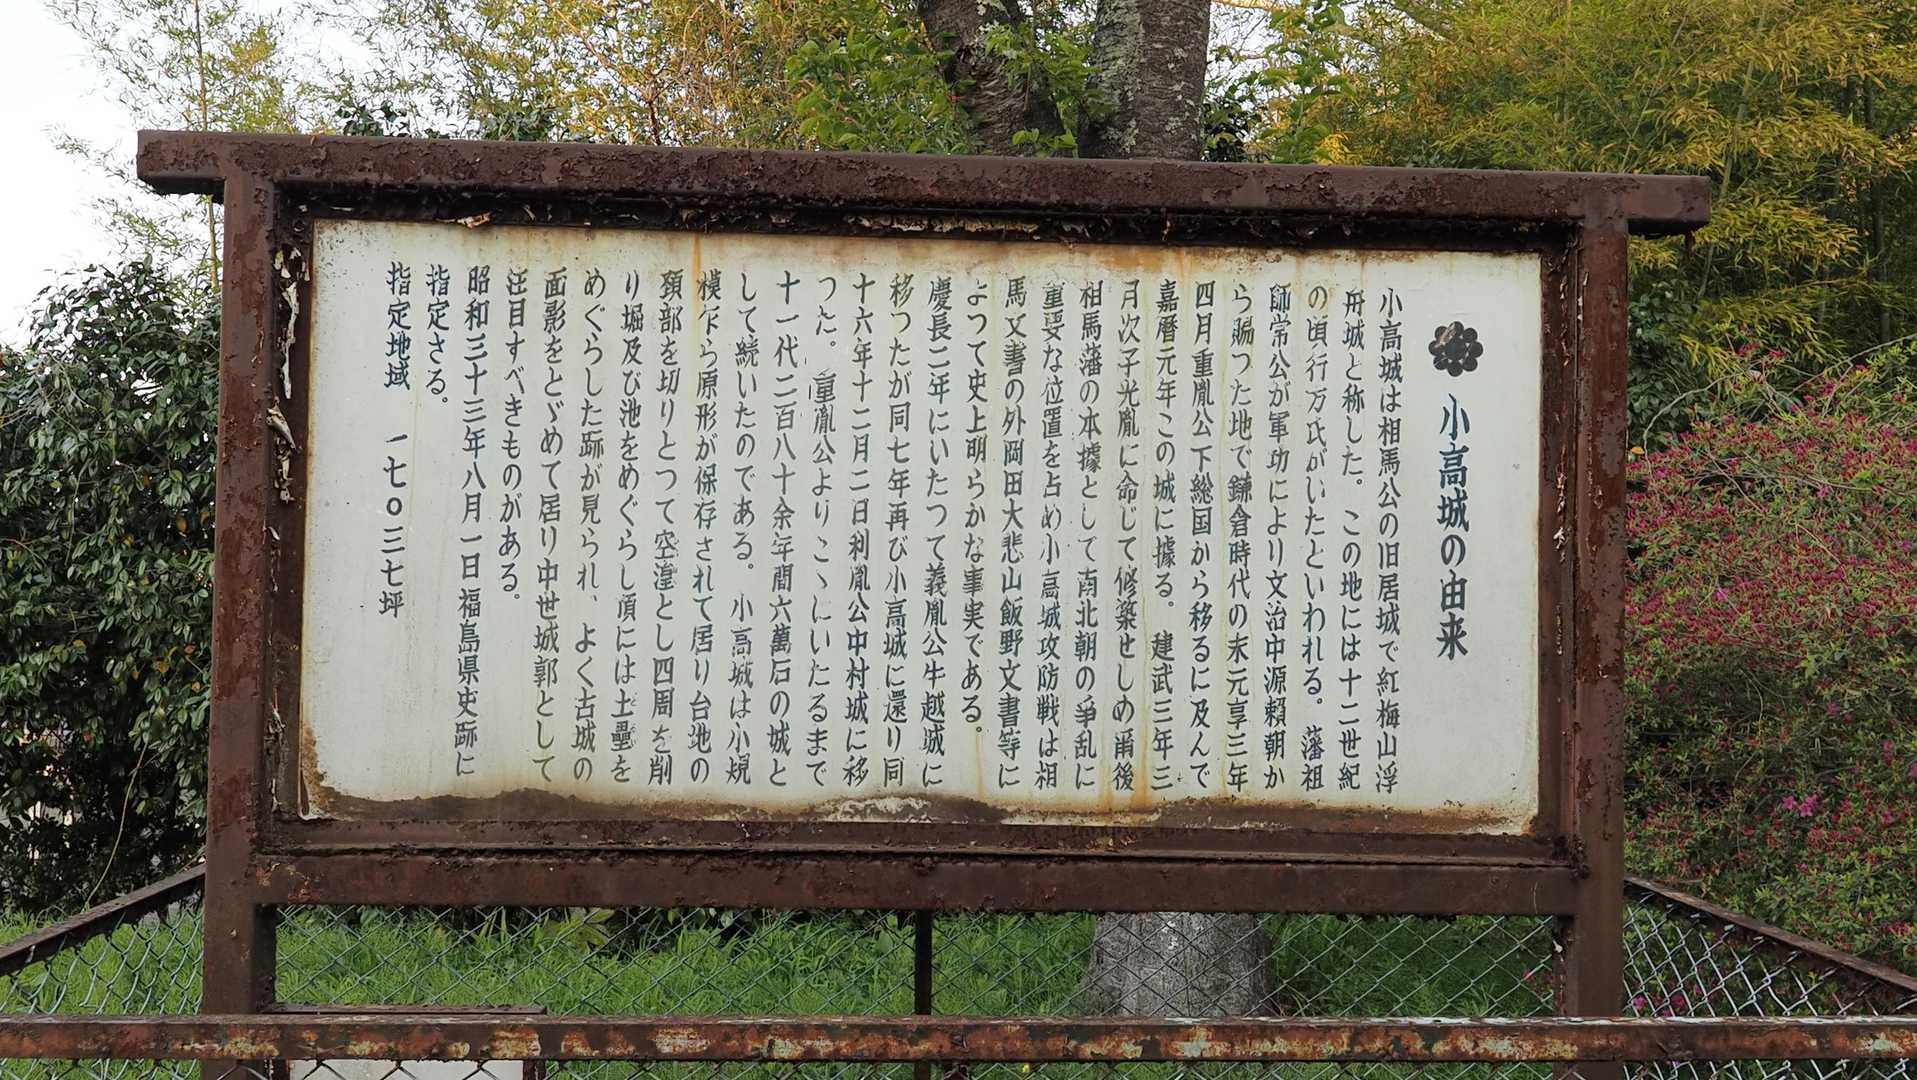 小高城の由来
小高城は相馬公の旧居城で紅梅山浮
舟城と称した。この地には十二世紀
の頃行方氏がいたといわれる。藩祖
師常公が軍功により文治中源頼朝か
ら賜つた地で鎌倉時代の末元享三年
四月重胤公下総国から移るに及んで
嘉暦元年この城に據る。建武三年三
月次子光胤に命じて修築せしめ爾後
相馬藩の本據として南北朝の争乱に
重要な位置を占め小高城攻防戦は相
馬文書の外岡田大悲山飯野文書等に
よつて史上明らかな事実である。
慶長二年にいたつて義胤公牛越城に
移つたが同七年再び小高城に還り同
十六年十二月二日利胤公中村城に移
つた。重胤公よりこゝにいたるまで
十一代二百八十余年間六萬石の城と
して続いたのである。小高城は小規
模乍ら原形が保存されて居り台地の
頚部を切りとつて空湟とし四周を削
り堀及び池をめぐらし頂には土壘を
めぐらした跡が見られ、よく古城の
面影をとゞめて居り中世城郭として
注目すべきものがある。
昭和三十三年八月一日福島県史跡に
指定さる。
指定地域 一七〇三七坪